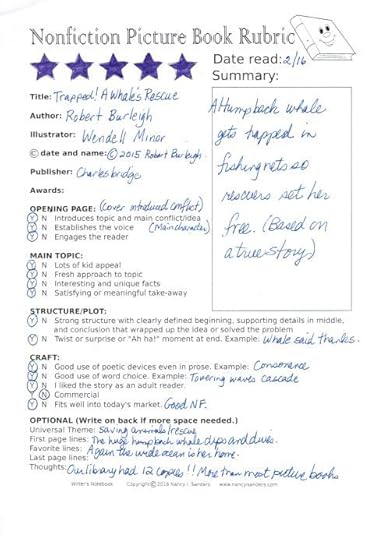 Nonfiction Picture Book Rubric
Date read: 2/16
Summary:
A Humpback whale
gets trapped in
fishing nets so
rescuers set her
free. (Based on
a true story)
Title: Trapped! A Whale's Rescue
Author: Robert Burleigh
Illustrator: Wendell Minor
© date and name: © 2015 Robert Burleigh.
Publisher: Charlesbridge
Awards:
OPENING PAGE: (Cover introduced conflict)
Y N Introduces topic and main conflict/idea
Y N Establishes the voice (Main character)
Y N Engages the reader
MAIN TOPIC:
Y N Lots of kid appeal
Y N Fresh approach to topic
Y N Interesting and unique facts
Y N Satisfying or meaningful take-away
STRUCTURE/PLOT:
Y N Strong structure with clearly defined beginning, supporting details in middle,
and conclusion that wrapped up the idea or solved the problem
Y N Twist or surprise or "Ah ha!" moment at end. Example: Whale said thanks.
CRAFT:
Y N Good use of poetic devices even in prose. Example: Consonance
Y N Good use of word choice. Example: Towering waves cascade
Y N I liked the story as an adult reader.
Y N Commercial
Y N Fits well into today's market. Good NF.
OPTIONAL (Write on back if more space needed.)
Universal Theme: saving animals/rescue
First page lines: The huge humpback whale dips and dives.
Favorite lines: Again the wide ocean is her home.
Last page lines:
Thoughts: Our library had 12 copies!! More than most picture books
Writer's Notebook Copyright © 2016 Nancy I. Sanders www.nancyisanders.com